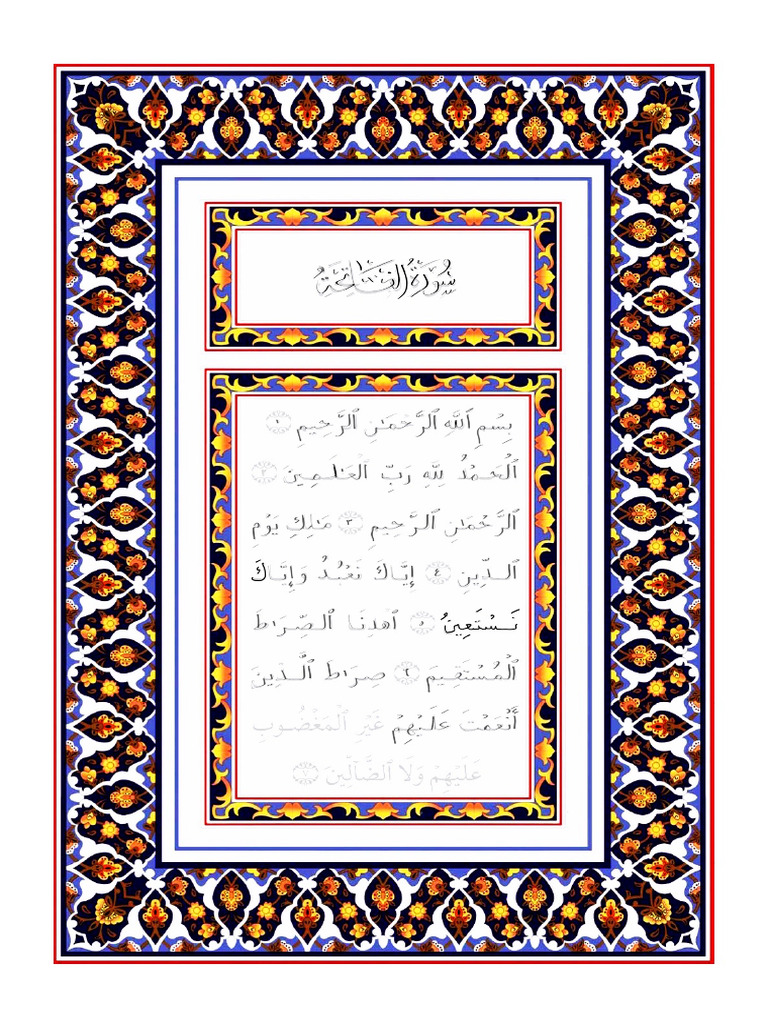 سُورَةُ الفَاتِحَةِ
بِسْمِ ٱللَّهِ ٱلرَّحْمَٰنِ ٱلرَّحِيمِ ١
ٱلْحَمْدُ لِلَّهِ رَبِّ ٱلْعَٰلَمِينَ ٢
ٱلرَّحْمَٰنِ ٱلرَّحِيمِ ٣ مَٰلِكِ يَوْمِ
ٱلدِّينِ ٤ إِيَّاكَ نَعْبُدُ وَإِيَّاكَ
نَسْتَعِينُ ٥ ٱهْدِنَا ٱلصِّرَٰطَ
ٱلْمُسْتَقِيمَ ٦ صِرَٰطَ ٱلَّذِينَ
أَنْعَمْتَ عَلَيْهِمْ غَيْرِ ٱلْمَغْضُوبِ
عَلَيْهِمْ وَلَا ٱلضَّآلِّينَ ٧